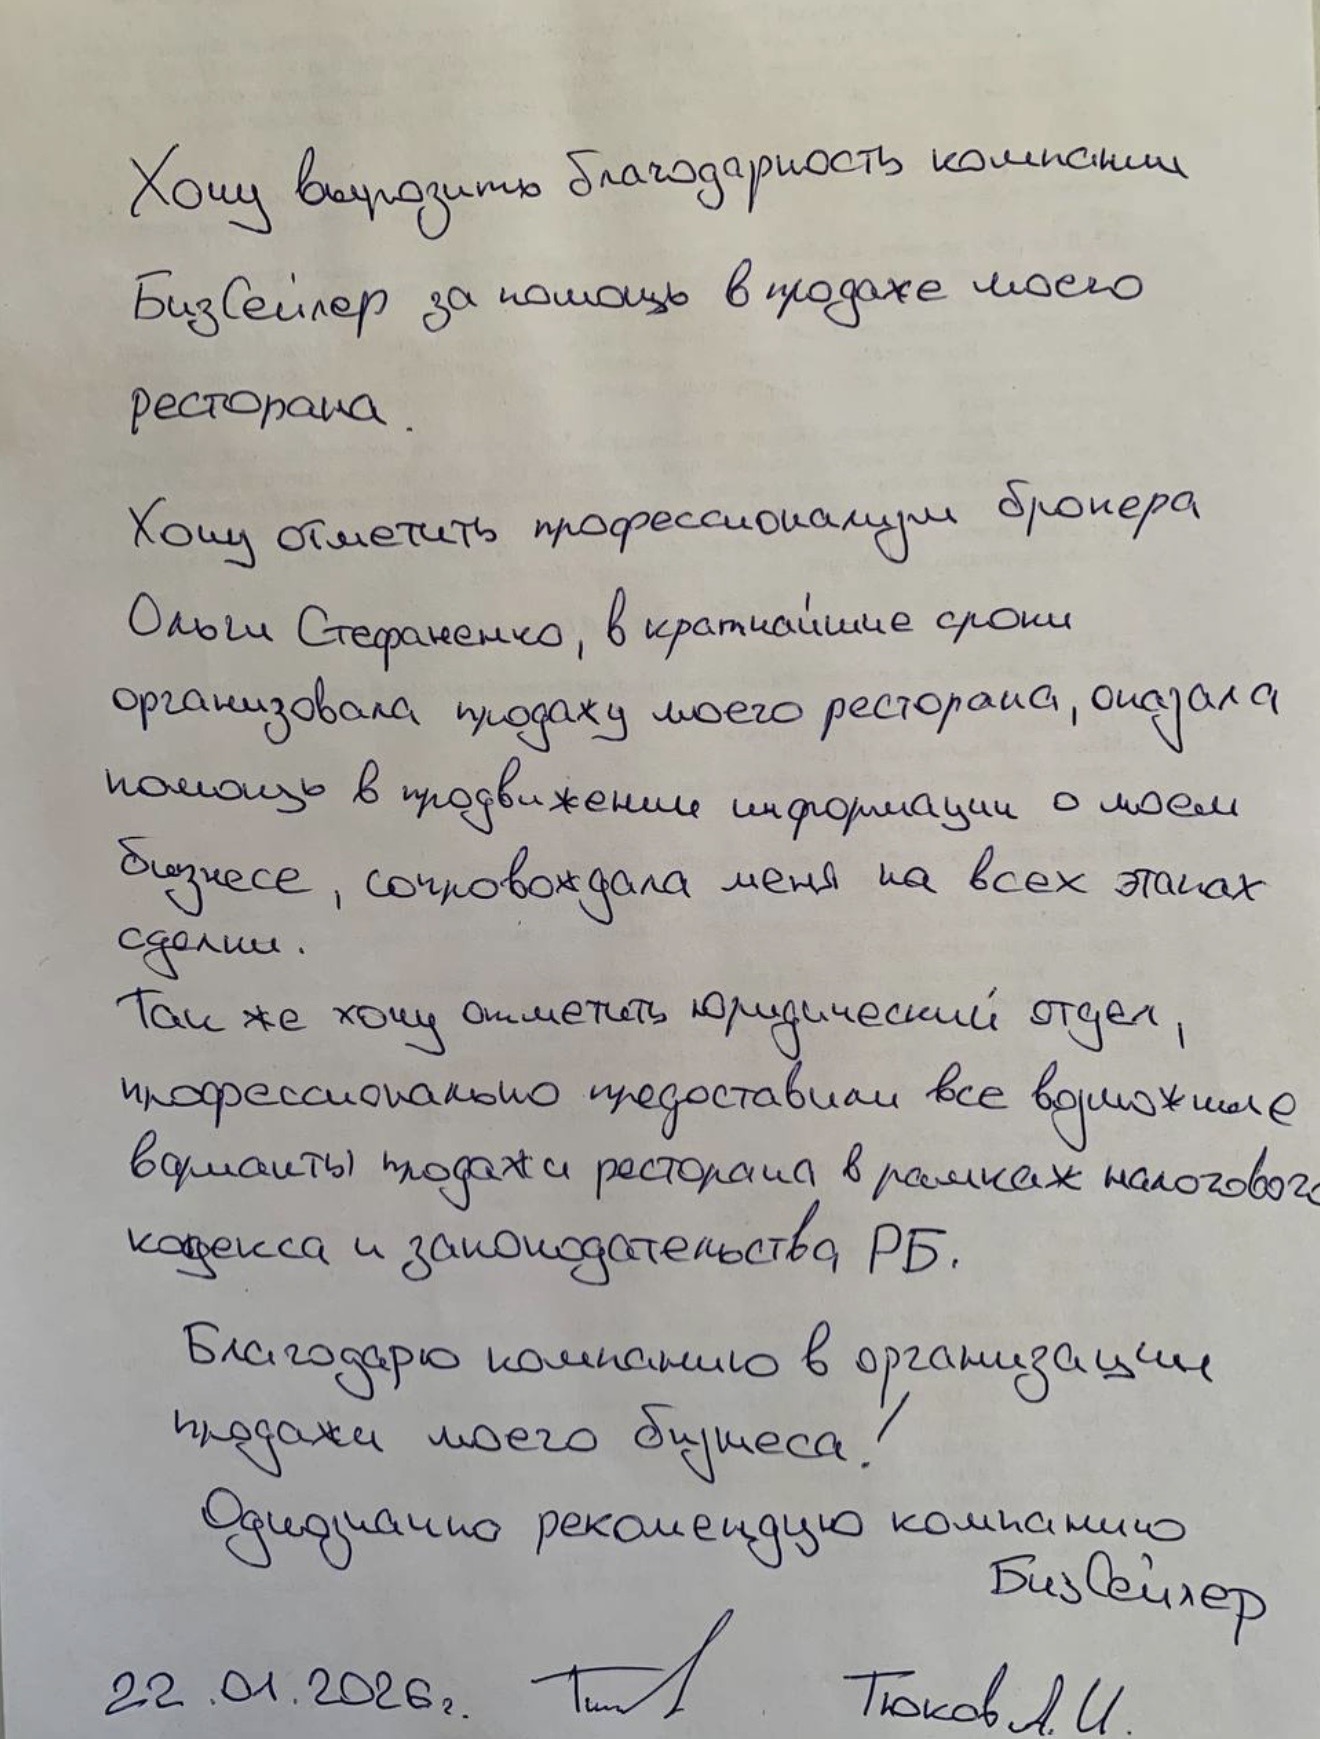 Хочу выразить благодарность компании
БизСейлер за помощь в продаже моего
ресторана.
Хочу отметить профессионализм брокера
Ольги Стефаненко, в кратчайшие сроки
организовала продажу моего ресторана, оказала
помощь в продвижении информации о моем
бизнесе, сопровождала меня на всех этапах
сделки.
Так же хочу отметить юридический отдел,
профессионально предоставили все возможные
варианты продажи ресторана в рамках налогового
кодекса и законодательства РБ.
Благодарю компанию в организации
продажи моего бизнеса!
Однозначно рекомендую компанию
БизСейлер
22.01.2026г. Тюков А.И.